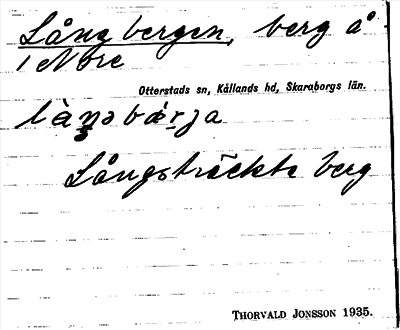 Långbergen, berg å
i Nore
Otterstads sn, Kållands hd, Skaraborgs län.
Långsträckta berg
THORVALD JONSSON 1935.